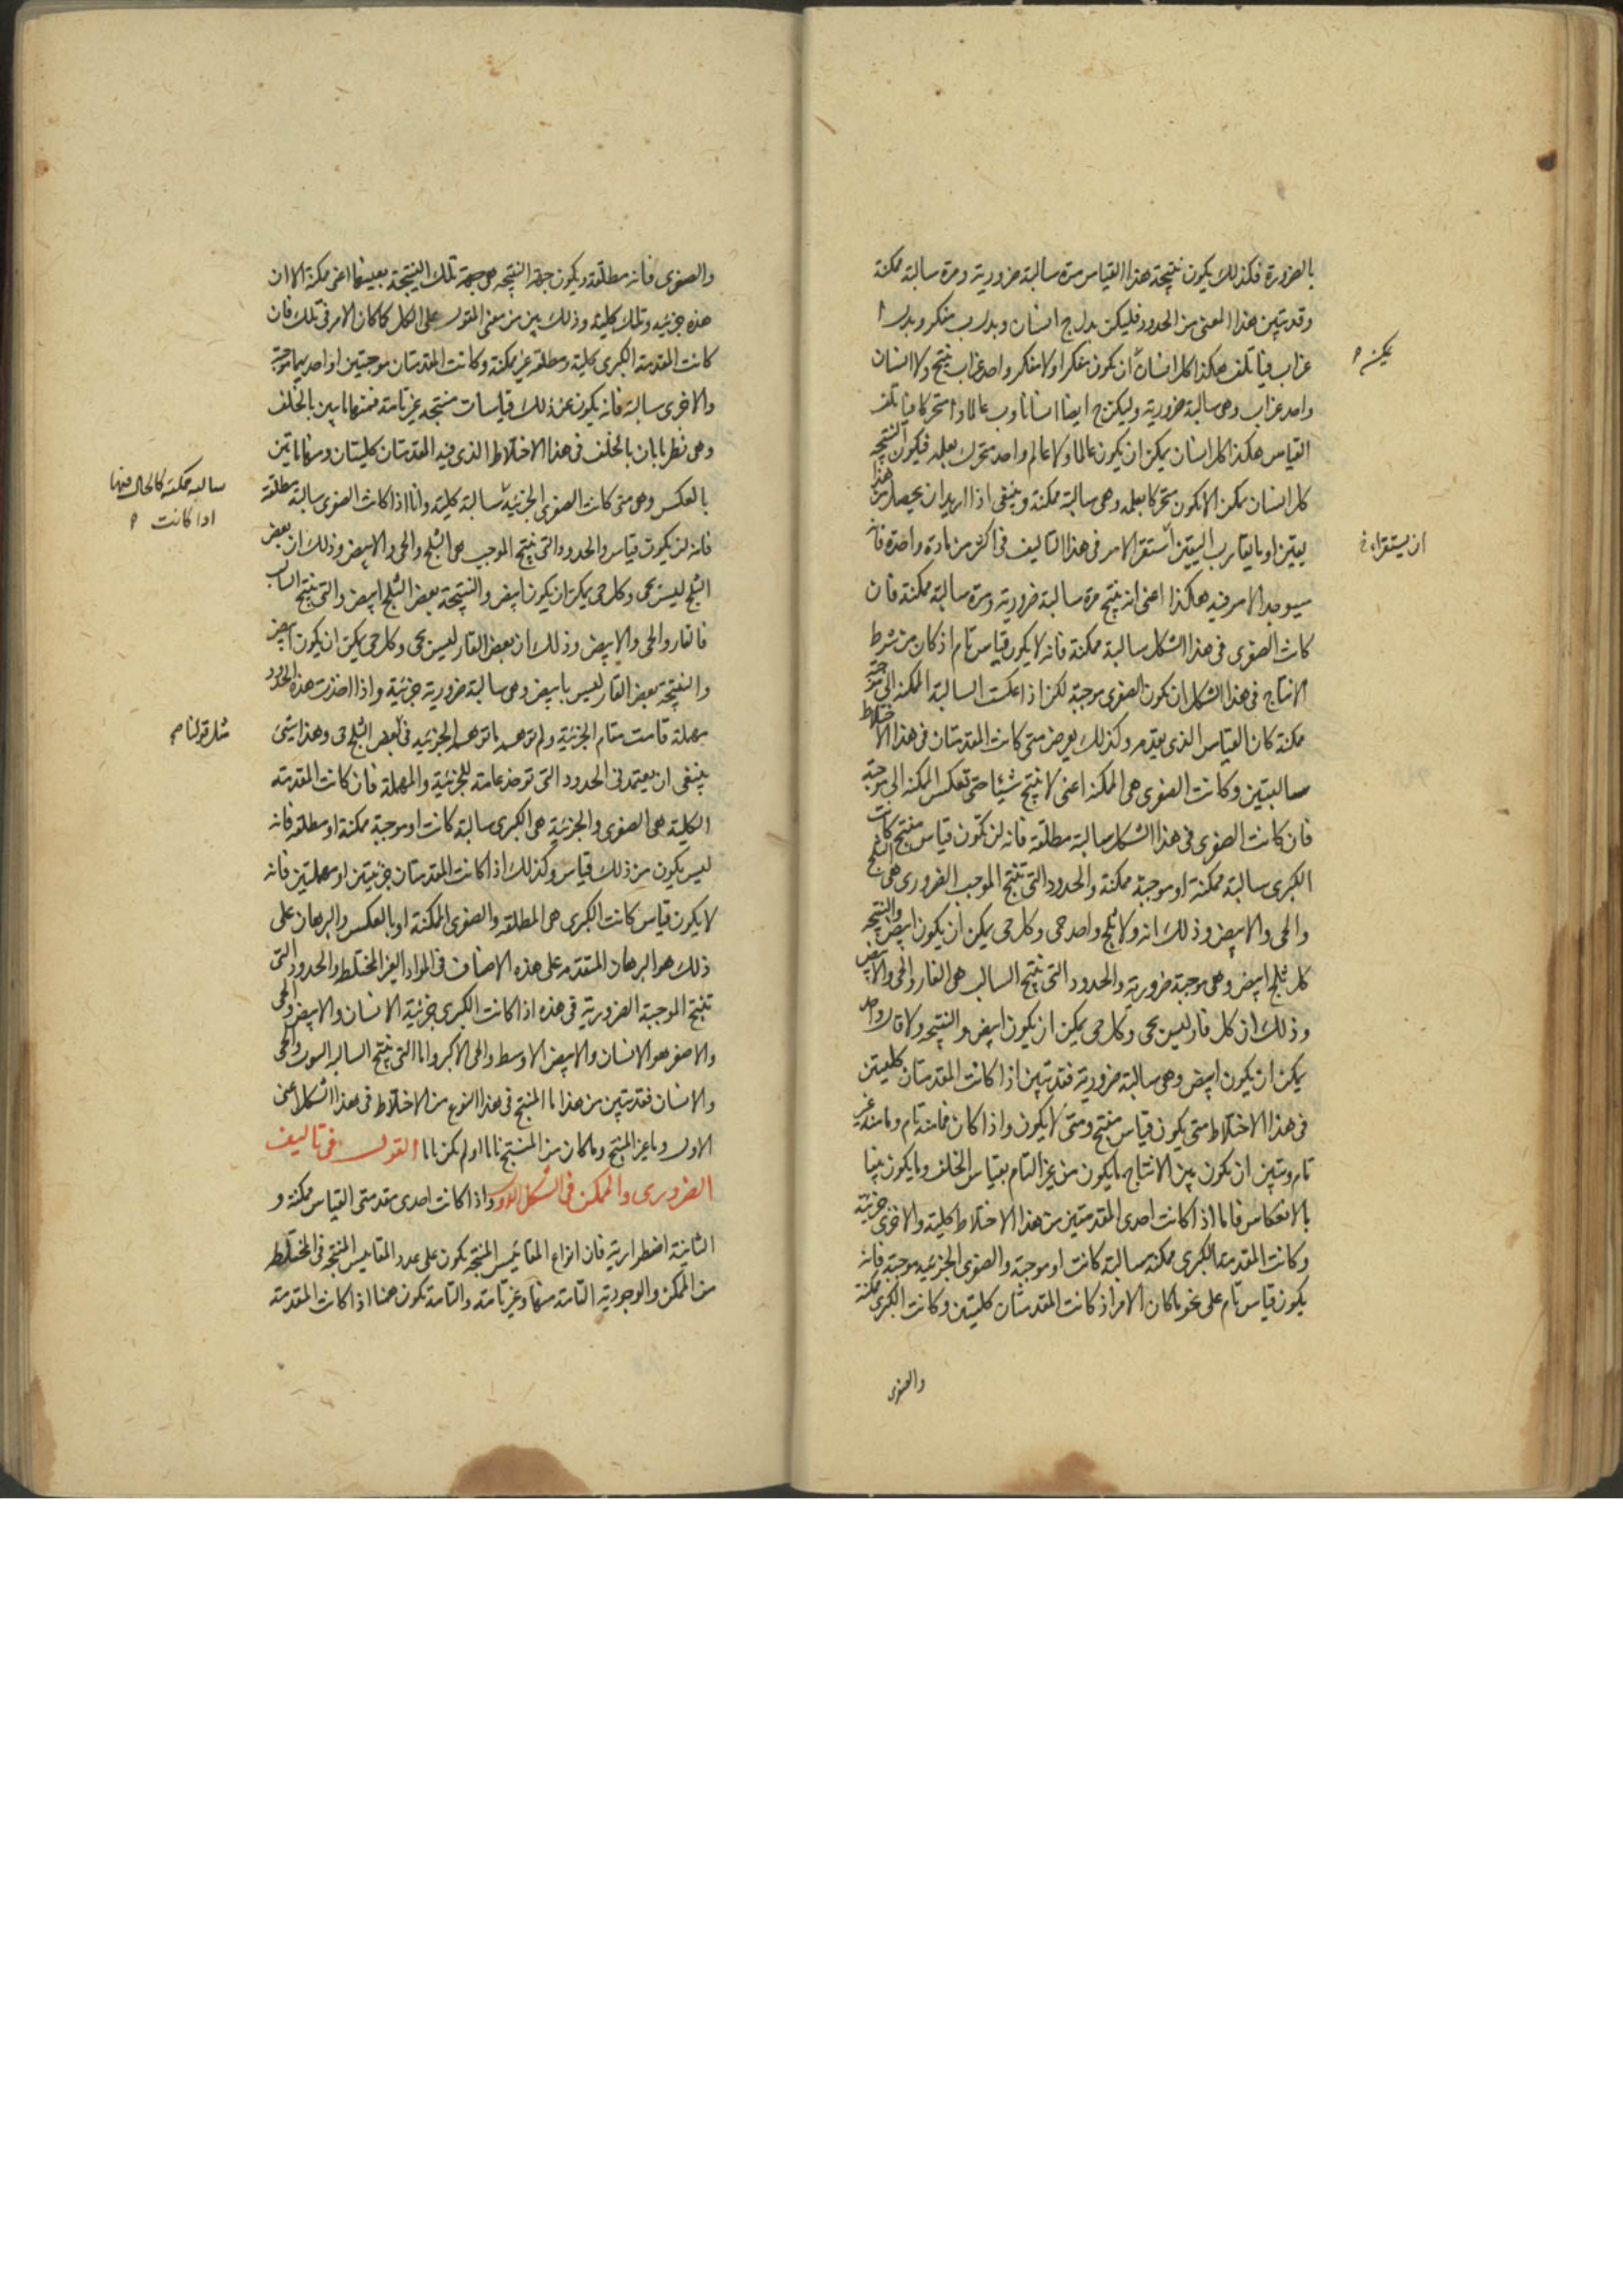 بالضرورة فكذلك يكون نتيجة هذا القياس مرة سالبة ضرورية ومرة سالبة ممكنة
وقد يتبين هذا المعنى من الحدود فليكن بدل ج انسان وبدل ب مفكر وبدل ا
غراب فياتلف هكذا كل انسان ان يكون مفكرا ولا مفكر واحد غراب ينتج ولا انسان
يمكن
واحد غراب وهي سالبة ضرورية وليكن ج ايضا انسانا وب عالما وا متحركا فياتلف
القياس هكذا كل انسان يمكن ان يكون عالما ولا عالم واحد متحرك بعلمه فيكون النتيجة
كل انسان ممكن الا يكون متحركا بعلمه وهي سالبة ممكنة وينبغي اذا اريد ان يحصل من هذا
يقين او ما يقارب اليقين استقر الامر في هذا التاليف في اكثر من مادة واحدة فانه
ان يستقراء
سيوجد الامر فيه هكذا اعني انه ينتج مرة سالبة ضرورية ومرة سالبة ممكنة فان
كانت الصغرى في هذا الشكل سالبة ممكنة فانه لا يكون قياس تام اذ كان من شرط
الانتاج في هذا الشكل ان يكون الصغرى موجبة لكن اذا عكست السالبة الممكنة الى موجبة
ممكنة كان القياس الذي يقدم وكذلك يعرض متى كانت المقدمتان في هذا الاختلاط
سالبتين وكانت الصغرى هي الممكنة اعني لا ينتج شيئا حتى تعكس الممكنة الى موجبة
فان كانت الصغرى في هذا الشكل سالبة مطلقة فانه لن تكون قياس منتج كانت
الكبرى سالبة ممكنة او موجبة ممكنة والحدود التي تنتج الموجب الضروري هي الثلج
والحي والابيض وذلك انه ولا ثلج واحد حي وكل حي يمكن ان يكون ابيض والنتيجة
كل ثلج ابيض وهي موجبة ضرورية والحدود التي ينتج السالب هي القار والحي والابيض
وذلك ان كل قار ليس بحي وكل حي يمكن ان يكون ابيض والنتيجة ولا قار واحد
يمكن ان يكون ابيض وهي سالبة ضرورية فقد تبين اذا كانت المقدمتان كليتين
في هذا الاختلاط متى يكون قياس منتج ومتى لا يكون واذا كان فما منه تام وما منه غير
تام وتبين ان يكون بين الانتاج ما يكون من غير التام بقياس الخلف وما يكون بينا
بالانعكاس فاما اذا كانت احدى المقدمتين من هذا الاختلاط كلية والاخرى جزئية
وكانت المقدمة الكبرى ممكنة سالبة كانت او موجبة والصغرى الجزئية موجبة فانه
يكون قياس تام على نحو ما كان الامر اذ كانت المقدمتان كليتين وكانت الكبرى ممكنة
والصغرى
والصغرى فانه مطلقة ويكون جهة النتيجة هي جهة تلك النتيجة بعينها اعني ممكنة الا ان
هذه جزئية وتلك كلية وذلك بين من معنى المقول على الكل كما كان الامر في تلك فان
كانت المقدمة الكبرى كلية ومطلقة غير ممكنة وكانت المقدمتان موجبتين او احديهما موجبة
والاخرى سالبة فانه يكون عن ذلك قياسات منتجة غير تامة فمنها ما يبين بالخلف
وهي نظير ما بان بالخلف في هذا الاختلاط الذي فيه المقدمتان كليتان ومنها ما يتبين
بالعكس وهي متى كانت الصغرى الجزئية سالبة كلية واما اذا كانت الصغرى سالبة مطلقة
سالبه ممكنه كالحال فيها
اذا كانت
فانه لن يكون قياس والحدود التي ينتج الموجب هي الثلج والحي والابيض وذلك ان بعض
الثلج ليس بحي وكل حي يمكن ان يكون ابيض والنتيجة بعض الثلج ابيض والتي ينتج السالب
فالقار والحي والابيض وذلك ان بعض القار ليس بحي وكل حي يمكن ان يكون ابيض
والنتيجة بعض القار ليس بابيض وهي سالبة ضرورية جزئية واذا اخذت هذه الحدود
مهملة قامت مقام الجزئية ولم في بعض الثلج حي وهذا شيئ
مثل قولنا
ينبغي ان يعتمد في الحدود التي توخذ عامة للجزئية والمهملة فان كانت المقدمة
الكلية هي الصغرى والجزئية هي الكبرى سالبة كانت او موجبة ممكنة او مطلقة فانه
ليس يكون من ذلك قياس وكذلك اذا كانت المقدمتان جزئيتين او مهملتين فانه
لا يكون قياس كانت الكبرى هي المطلقة والصغرى الممكنة او بالعكس والبرهان على
ذلك هو البرهان المتقدم على هذه الاصناف في المواد الغير المختلط والحدود التي
تنتج الموجبة الضرورية في هذه اذا كانت الكبرى جزئية الانسان والابيض والحي
والاصغر هو الانسان والابيض الاوسط والحي الاكبر واما التي ينتج السالبه والحي
والانسان فقد تبين من هذا ما المنتج في هذا النوع من الاختلاط في هذا الشكل اعني
الاول وما غير المنتج وما كان من المنتج تاما او لم يكن تاما القول في تاليف
الضروري والممكن في الشكل الاول واذا كانت احدى مقدمتي القياس ممكنة و
الثانية اضطرارية فان انواع المقائيس المنتجة يكون على عدد المقاييس المنتجة في المختلط
من الممكن والوجودية التامة منها وغير تامة والتامة تكون هنا اذا كانت المقدمة